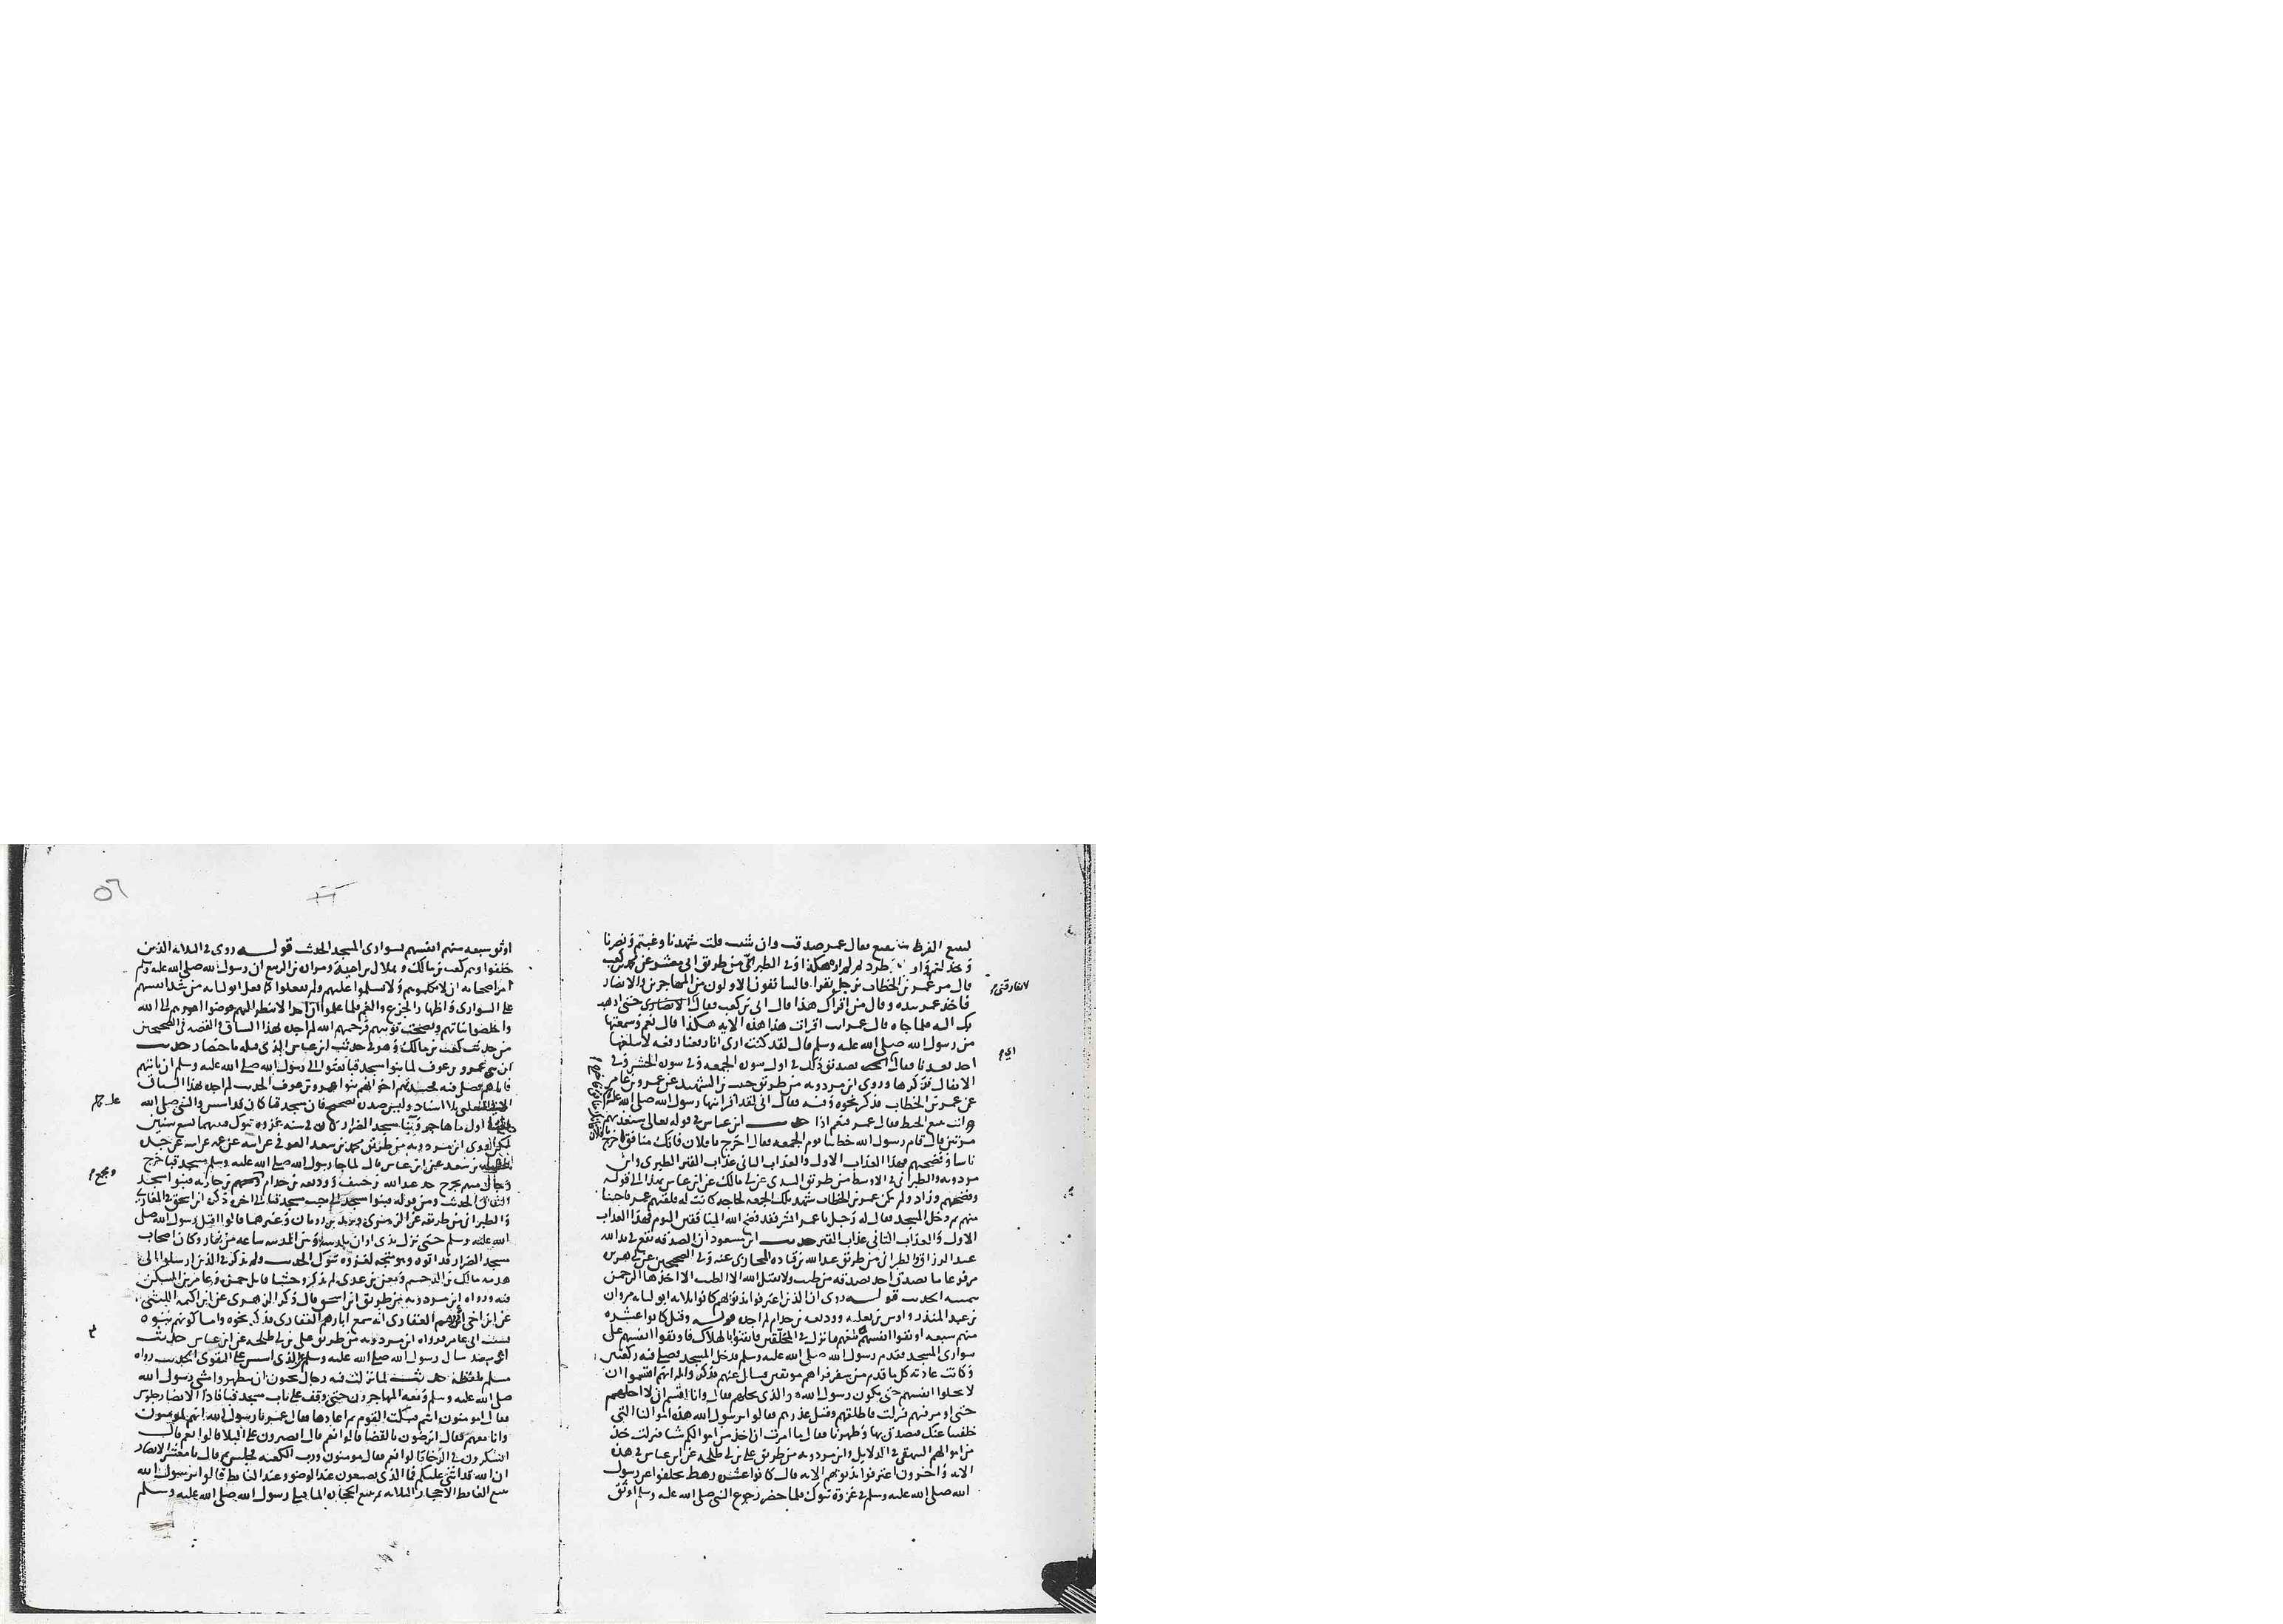 لبيع القرظ بالبقيع فقال عمر صدقت وان شئت قلت شهدنا وغبتم ونصرنا
وخذلتم واوينا وطردتم هكذا وفي الطبراني من طريق ابي معشر عن محمد بن كعب
قال مر عمر بن الخطاب برجل يقرا والسابقون الاولون من المهاجرين والانصار
فاخذ عمر بيده وقال من اقراك هذا قال ابي بن كعب فقال لا تفارقني حتى اذهب
بك اليه فلما جاه قال عمر انت اقرات هذا هذه الاية هكذا قال نعم وسمعتها
من رسول الله صلى الله عليه وسلم قال لقد كنت ارى انا رفعنا رفعة لا يبلغها
احد بعدنا فقال ابي تصديق ذلك في اول سورة الجمعة وفي سورة الحشر وفي
الانفال فذكرها وروى ابن مردويه من طريق حبيب بن الشهيد عن عمرو بن عامر
عن عمر بن الخطاب فذكر نحوه وفيه فقال ابي لقد اقرانيها رسول الله صلى الله عليه وسلم
وانت تبيع الخبط فقال عمر فنعم اذا حديث ابن عباس في قوله تعالى سنعذبهم
مرتين قال قام رسول الله خطيبا يوم الجمعة فقال اخرج يا فلان فانك منافق اخرج
ناسا وفضحهم فهذا العذاب الاول والعذاب الثاني عذاب القبر الطبري وابن
مردويه والطبراني في الاوسط من طريق السدي عن ابي مالك عن ابن عباس بهذا الى قوله
وفضحهم وزاد ولم يكن عمر بن الخطاب شهد تلك الجمعة لحاجة كانت له فلقيهم عمر
منهم ثم دخل المسجد فقال له رجل يا عمر ابشر فقد فضح الله المنافقين اليوم فهذا العذاب
الاول والعذاب الثاني عذاب القبر حديث ابن مسعود ان الصدقة تقع في يد الله
عبد الرزاق والطبراني من طريق عبد الله بن قتادة المحاربي عنه وفي الصحيحين عن ابي هريرة
مرفوعا ما تصدق احد بصدقة من طيب ولا يقبل الله الا الطيب الا اخذها الرحمن
بيمينه الحديث قوله روى ان الذين اعترفوا بذنوبهم كانوا ثلاثة ابو لبابة مروان
بن عبد المنذر واوس بن ثعلبة ووديعة بن حزام لم اجده قوله وقيل كانوا عشرة
منهم سبعة اوثقوا انفسهم بلغهم ما نزل في المتخلفين فايقنوا بالهلاك فاوثقوا انفسهم على
سواري المسجد فقدم رسول الله صلى الله عليه وسلم فدخل المسجد فصلى فيه ركعتين
وكانت عادته كلما قدم من سفر فراهم موثقين فسال عنهم فذكر والله انهم اقسموا ان
لا يحلوا انفسهم حتى يكون رسول الله هو الذي يحلهم فقال وانا اقسم ان لا احلهم
حتى اومر فيهم فنزلت فاطلقهم وقبل عذرهم فقالوا يرسول الله هذه اموالنا التي
خلفتنا عنك فتصدق بها وطهرنا فقال ما امرت ان اخذ من اموالكم شيا فنزلت خذ
من اموالهم البيهقي في الدلايل وابن مردويه من طريق علي بن ابي طلحة عن ابن عباس في هذه
الاية واخرون اعترفوا بذنوبهم الاية قال كانوا عشرة رهط تخلفوا عن رسول
الله صلى الله عليه وسلم في غزوة تبوك فلما حضر رجوع النبي صلى الله عليه وسلم اوثق
٥٦
اوثق سبعة منهم انفسهم بسواري المسجد الحديث قوله روى في الثلاثة الذين
خلفوا وهم كعب بن مالك وهلال بن امية ومرارة بن الربيع ان رسول الله صلى الله عليه وسلم
امر اصحابه ان لا يكلموهم ولا يسلموا عليهم ولم يفعلوا كما فعل ابو لبابة من شد انفسهم
على السواري واظهار الجزع والغم فلما علموا ان احدا لا ينظر اليهم فوضوا امرهم الى الله
واخلصوا نياتهم ونصحت توبتهم فرحمهم الله لم اجده بهذا السياق والقصة في الصحيحين
من حديث كعب بن مالك وهو في حديث ابن عباس الذي قبله باختصار حديث
ان بني عمرو بن عوف لما بنوا مسجد قبا بعثوا الى رسول الله صلى الله عليه وسلم ان ياتيهم
فاتاهم فصلى فيه فحسدتهم اخوانهم بنوا عمرو بن عوف الحديث لم اجده بهذا السياق
الا الثعلبي بلا اسناد وليس صدره بصحيح فان مسجد قبا كان قد اسس والنبي صلى الله
اول ما هاجر وبنا مسجد الضرار كان في سنة غزوة تبوك فبينهما تسع سنين
لكن روى ابن مردويه من طريق محمد بن سعد العوفي عن ابيه عن عمه عن ابيه عن جده
بن سعد عن ابن عباس قال لما بنا رسول الله صلى الله عليه وسلم مسجد قبا خرج
رجال منهم بحزج جد عبد الله بن حنيف ووديعة بن حزام بن جارية فبنوا مسجد
النفاق الحديث ومن قوله فبنوا مسجدا الى جنب مسجد قبا الى اخره ذكره ابن اسحق في المغازي
والطبراني من طريقه عن الزهري ويزيد بن رومان وغيرهما قالوا اقبل رسول الله صلى
الله عليه وسلم حتى نزل بذي اوان بلد بينه وبين المدينة ساعة من نهار وكان اصحاب
مسجد الضرار قد اتوه وهو متجهز لغزوة تبوك الحديث ولم يذكر في الذين ارسلوا الى
هدمه مالك بن الدخشم ومعن بن عدي لم يذكر وحشيا قاتل حمزة وعامر بن السكن
فيه ورواه ابن مردويه من طريق ابن اسحق قال ذكر الزهري عن ابن اكيمة الليثي
عن ابن اخي ابي رهم الغفاري انه سمع ابا رهم الغفاري فذكر نحوه واما كونهم بنوه
بسبب ابي عامر فرواه ابن مردويه من طريق علي بن ابي طلحة عن ابن عباس حديث
سال رسول الله صلى الله عليه وسلم عن الذي اسس على التقوى الحديث رواه
مسلم بلفظه حديث لما نزلت فيه رجال يحبون ان يتطهروا مشى رسول الله
صلى الله عليه وسلم ومعه المهاجرون حتى وقف على باب مسجد قبا فاذا الانصار جلوس
فقال امومنون انتم فسكت القوم ثم اعادها فقال عمر يا رسول الله انهم لمومنون
وانا معهم فقال اترضون بالقضا قالوا نعم قال اتصبرون على البلا قالوا نعم قال
اتشكرون في الرخا قالوا نعم فقال مومنون ورب الكعبة فجلس ثم قال يا معشر الانصار
ان الله قد اثنى عليكم فما الذي تصنعون عند الوضو وعند الغايط قالوا يرسول الله
نتبع الغايط الاحجار الثلاثة ثم نتبع الحجارة الما فتلى رسول الله صلى الله عليه وسلم